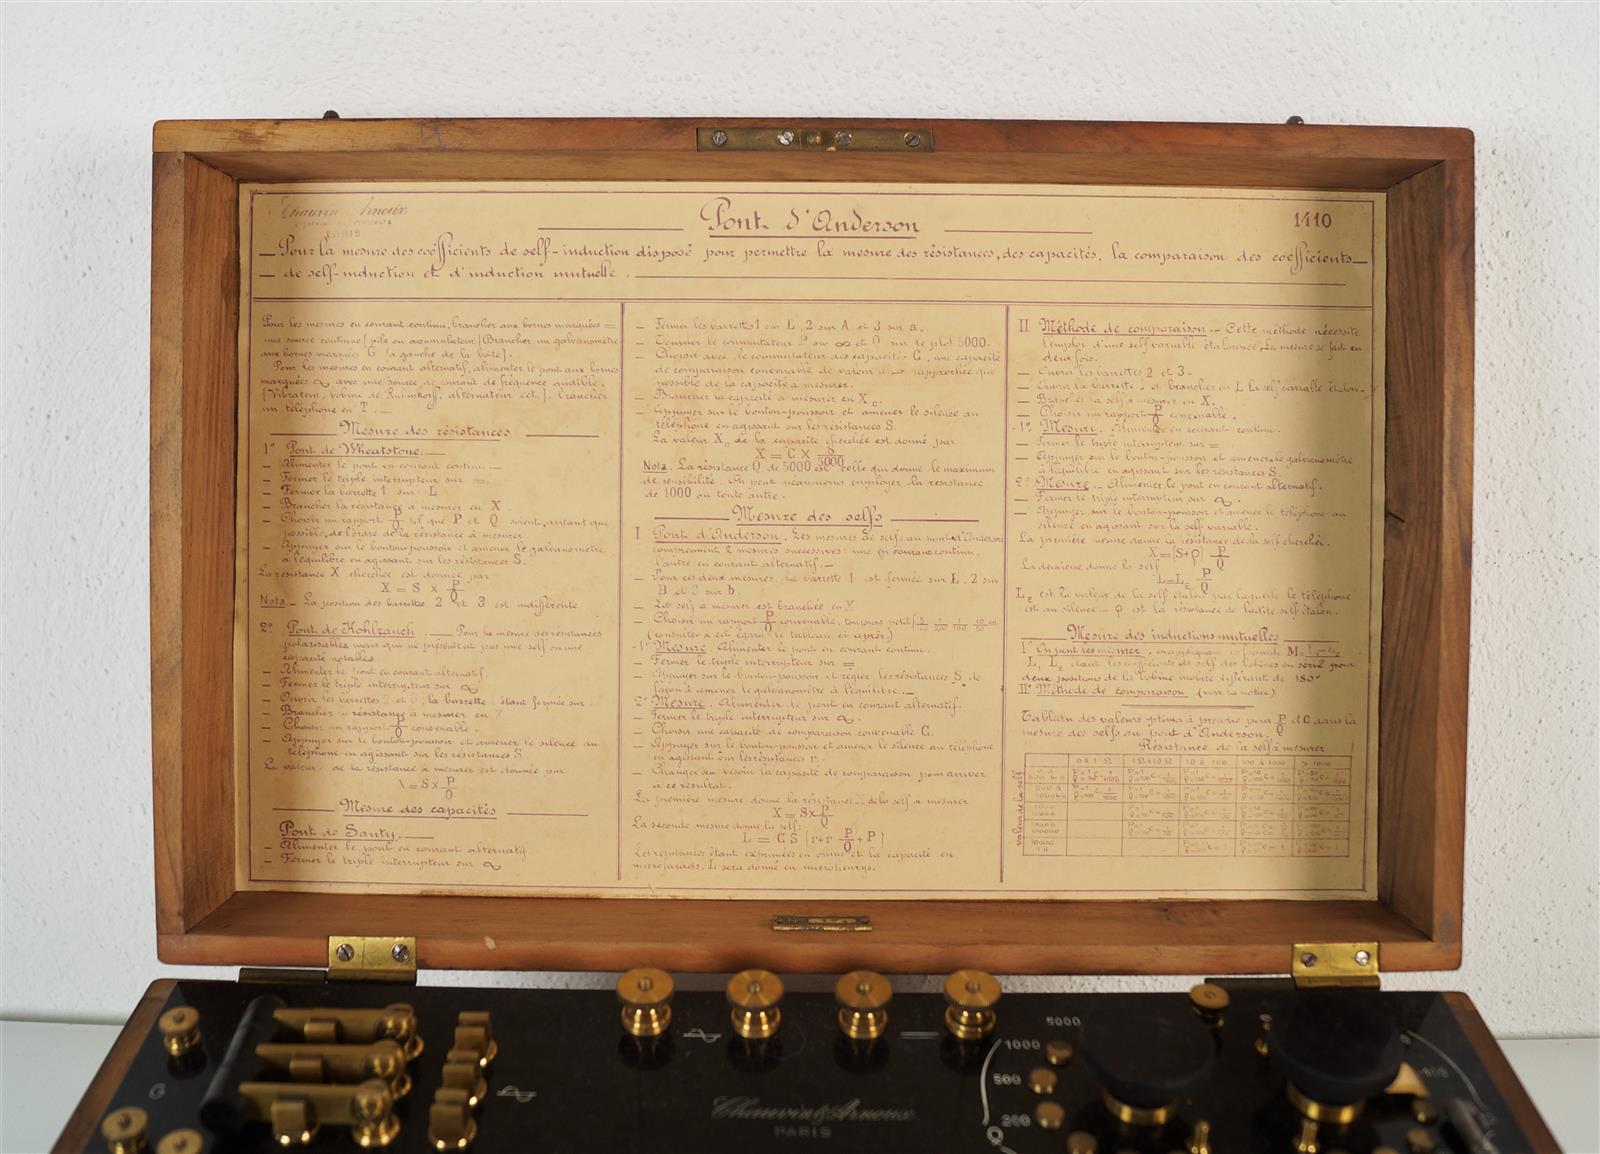 Chauvin & Arnoux
PARIS
Pont d'Anderson
1410
Pour la mesure des coefficients de self-induction disposé pour permettre la mesure des résistances, des capacités, la comparaison des coefficients
de self-induction et d'induction mutuelle.
Pour les mesures en courant continu, brancher aux bornes marquées =
une source continue (pile ou accumulateur) (Brancher un galvanomètre
aux bornes marquées G (a gauche de la boite).
Pour les mesures en courant alternatif, alimenter le pont aux bornes
marquées ~ avec une source de courant de fréquence audible.
(Vibrateur, bobine de Ruhmkorff, alternateur ect.). brancher
un téléphone en T. —
Mesure des résistances
1° Pont de Wheatstone. —
— Alimenter le pont en courant continu —
— Fermer le triple interrupteur sur =
— Fermer la barrette 1 sur L
— Brancher la résistance a mesurer en X
— Choisir un rapport P/Q tel que P et Q soient, autant que
possible, de l'ordre de la résistance à mesurer.
— Appuyer sur le bouton-poussoir et amener le galvanomètre
à l'équilibre en agissant sur les résistances S.
La résistance X cherchée est donnée par
X = S × P/Q
Nota — La position des barrettes 2 et 3 est indifférente
2° Pont de Kohlrauch — Pour la mesure des résistances
polarisables mais qui ne présentent pas une self ou une
capacité notables.
— Alimenter le pont en courant alternatif.
— Fermer le triple interrupteur sur ~
— Ouvrir les barrettes 2 et 3, la barrette 1 étant fermée sur
— Brancher la résistance à mesurer en
— Choisir un rapport P/Q convenable.
— Appuyer sur le bouton-poussoir et amener le silence au
téléphone en agissant sur les résistances S.
La valeur de la résistance a mesurer est donnée par
X = S × P/Q
Mesure des capacités
Pont de Sauty. —
— Alimenter le pont en courant alternatif
— Fermer le triple interrupteur sur ~
— Fermer les barrettes 1 sur L, 2 sur A et 3 sur a.
— Tourner le commutateur P sur ∞ et Q sur le plot 5000.
— Choisir avec le commutateur des capacités C, une capacité
de comparaison convenable de valeur aussi rapprochée que
possible de la capacité a mesurer.
— Brancher la capacité à mesurer en X
— Appuyer sur le bouton-poussoir et amener le silence au
téléphone en agissant sur les résistances S.
La valeur Xc de la capacité cherchée est donné par
X = C × S/5000
Nota. La résistance Q de 5000 est celle qui donne le maximum
de sensibilité. On peut néanmoins employer la résistance
de 1000 ou toute autre.
Mesure des selfs
I Pont d'Anderson. Les mesures de selfs au pont d'Anderson
comprennent 2 mesures successives: une en courant continu,
l'autre en courant alternatif. —
— Pour ces deux mesures, la barrette 1 est fermée sur L, 2 sur
B et 3 sur b.
— La self a mesurer est branchée en X
— Choisir un rapport P/Q convenable, toujours petit
(consulter à cet égard le tableau ci après.)
1° Mesure. Alimenter le pont en courant continu.
— Fermer le triple interrupteur sur =
— Appuyer sur le bouton-poussoir et régler les résistances S de
façon à amener le galvanomètre à l'équilibre. —
2° Mesure. Alimenter le pont en courant alternatif.
— Fermer le triple interrupteur sur ~.
— Choisir une capacité de comparaison convenable C.
— Appuyer sur le bouton-poussoir et amener le silence au téléphone
en agissant sur les résistances r.
— Changer au besoin la capacité de comparaison pour arriver
a ce résultat.
La première mesure donne la résistance X de la self a mesurer
X = S × P/Q
La seconde mesure donne la self:
L = C S (r+r P/Q + P)
Les résistances étant exprimées en ohms et la capacité en
microfarads, L sera donné en microhenrys.
II Méthode de comparaison. — Cette méthode nécessite
l'emploi d'une self variable étalonnée. La mesure se fait en
deux fois.
— Ouvrir les barrettes 2 et 3.
— Ouvrir la barrette 1 et brancher en L la self variable étalon.
— Brancher la self a mesurer en X.
— Choisir un rapport P/Q convenable.
1° Mesure. Alimenter en courant continu.
— Fermer le triple interrupteur sur =
— Appuyer sur le bouton-poussoir et amener le galvanomètre
à l'équilibre en agissant sur les résistances S
2° Mesure. — Alimenter le pont en courant alternatif.
— Fermer le triple interrupteur sur ~.
— Appuyer sur le bouton-poussoir et amener le téléphone au
silence en agissant sur la self variable.
La première mesure donne la résistance de la self cherchée.
X = (S+ρ) P/Q
La deuxième donne la self
L = LE P/Q
LE est la valeur de la self étalon par laquelle le téléphone
est au silence — ρ est la résistance de ladite self étalon.
Mesure des inductions mutuelles
I° On peut les mesurer, en appliquant la formule M=
L1 L2 étant les coefficients de self des bobines en série pour
deux positions de la bobine mobile, différant de 180°
II° Méthode de comparaison (voir la notice)
Tableau des valeurs optima à prendre pour P/Q et C dans la
mesure des selfs au pont d'Anderson.
Résistance de la self à mesurer
0 à 1 Ω 1 Ω à 10 Ω 10 à 100 100 à 1000 > 1000
Valeur de la self
G
5000
1000
500
200
Q
Chauvin & Arnoux
PARIS